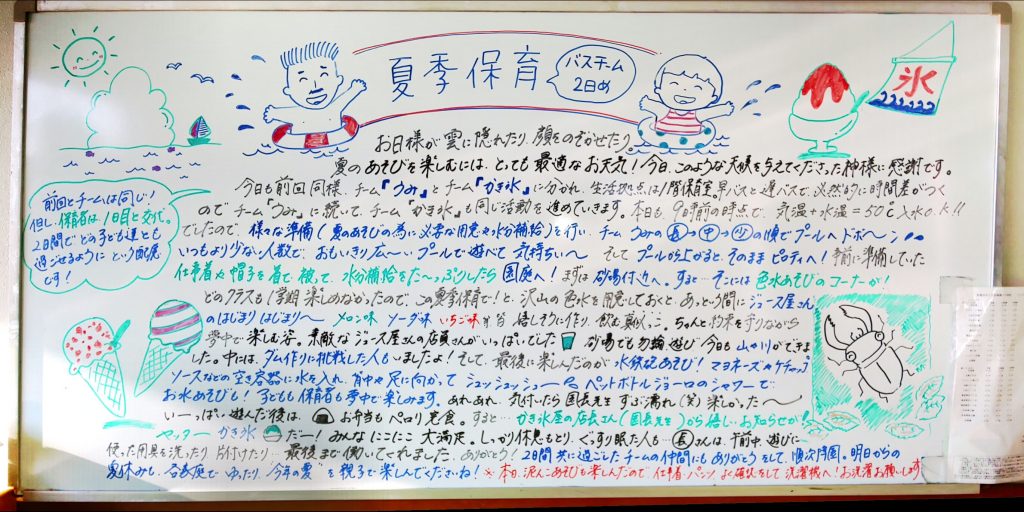 夏季保育
バスチーム
2日め
氷
お日様が雲に隠れたり、顔をのぞかせたり。
夏のあそびを楽しむには、とても最適なお天気！今日、このような天候を与えてくださった神様に感謝です。
今日も前回同様、チーム『うみ』とチーム『かき氷』に分かれ、生活拠点は1階保育室。早バスと遅バスで、必然的に時間差がつく
のでチーム『うみ』に続いて、チーム『かき氷』も同じ活動を進めていきます。本日も、9時前の時点で、気温+水温=50℃入水O.K!!
でしたので、様々な準備（夏のあそびの為に必要な用意や水分補給）を行い、チームうみの長→中→少の順でプールへドボ〜ン
いつもより少ない人数で、おもいきり広〜いプールで遊べて気持ちい〜 そしてプールから上がると、そのままピロティへ！事前に準備していた
仕事着や帽子を着て、被って、水分補給をた〜っぷりしたら園庭へ！まずは砂場付近へ。すると…そこには色水あそびのコーナーが！
どのクラスも1学期楽しめなかったので、この夏季保育で！と、沢山の色水を用意しておくと、あっという間にジュース屋さん
のはじまりはじまり〜 メロン味 ソーダ味 いちご味 嬉しそうに作り、飲む真似っこ。ちゃんと約束を守りながら
夢中で楽しむ姿。素敵なジュース屋さんの店員さんがいっぱいでした 砂場でも勿論遊び 今日も山や川ができま
した。中には、ダム作りに挑戦した人もいましたよ！そして、最後に楽しんだのが水鉄砲あそび！マヨネーズやケチャップ
ソースなどの空き容器に水を入れ、背中や足に向かってシュッシュッシュー ペットボトルジョーロのシャワーで
お水あそびも！子どもも保育者も夢中で楽しみます。あれあれ、気付いたら園長先生ずぶ濡れ（笑）楽しかった〜
い〜っぱい遊んだ後は、お弁当もペロリ完食。すると…かき氷屋の店長さん（園長先生）から嬉しいお知らせが！
ヤッター かき氷だー！みんなにこにこ大満足。しっかり休息もとり、ぐっすり眠た人も…長さんは、午前中、遊びに
使った用具を洗ったり片付けたり…最後まで働いてくれました。ありがとう！2日間共に過ごしたチームの仲間にもありがとうをして、順次降園。明日からの
夏休みも、各家庭でゆったり、"今年の夏"を親子で楽しんでくださいね！※本日、泥んこあそびも楽しんだので、仕事着・パンツ、よく確認をして洗濯機へ！お洗濯お願いします
前回とチームは同じ！
但し、保育者は1日目と交代。
2日間でどの子ども達とも
過ごせるようにという配慮
です！